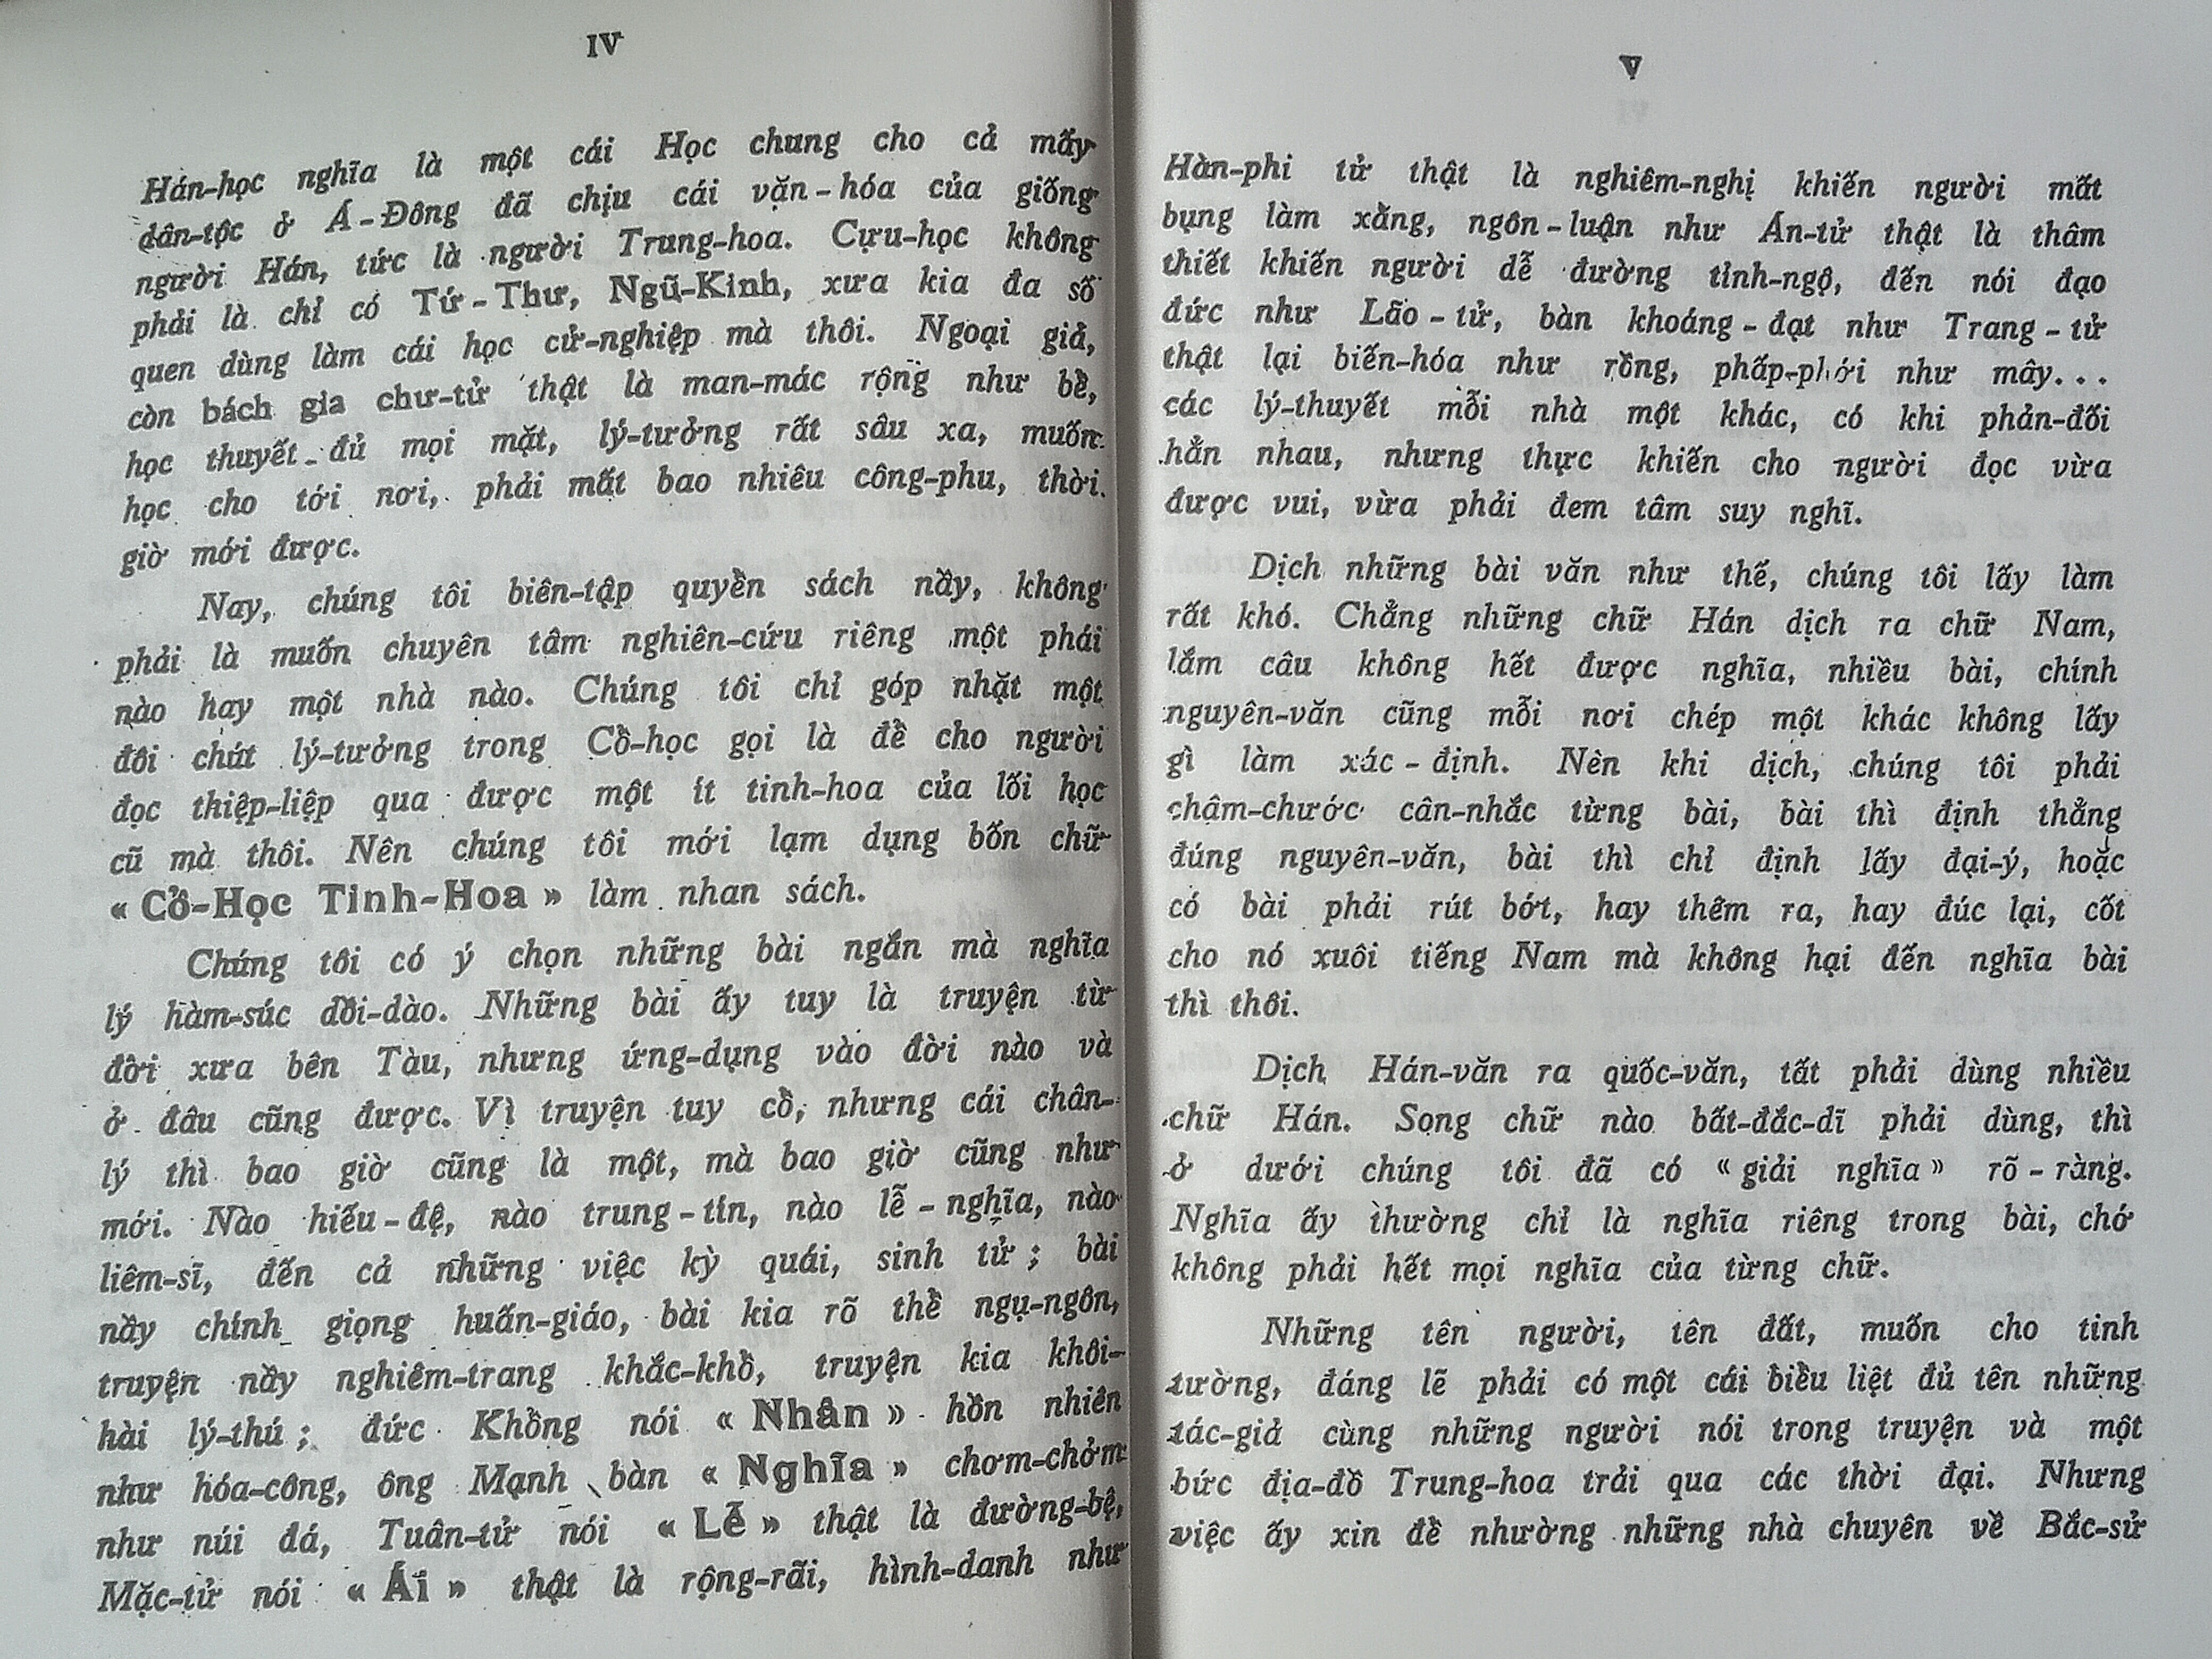 IV
Hán-học nghĩa là một cái Học chung cho cả mấy
dân-tộc ở Á-Đông đã chịu cái văn-hóa của giống
người Hán, tức là người Trung-hoa. Cựu-học không
phải là chỉ có Tứ-Thư, Ngũ-Kinh, xưa kia đa số
quen dùng làm cái học cử-nghiệp mà thôi. Ngoại giả,
còn bách gia chư-tử thật là man-mác rộng như bể,
học thuyết đủ mọi mặt, lý-tưởng rất sâu xa, muốn
học cho tới nơi, phải mất bao nhiêu công-phu, thời
giờ mới được.
Nay, chúng tôi biên-tập quyển sách nầy, không
phải là muốn chuyên tâm nghiên-cứu riêng một phái
nào hay một nhà nào. Chúng tôi chỉ góp nhặt một
đôi chút lý-tưởng trong Cổ-học gọi là để cho người
đọc thiệp-liệp qua được một ít tinh-hoa của lối học
cũ mà thôi. Nên chúng tôi mới lạm dụng bốn chữ
« Cổ-Học Tinh-Hoa » làm nhan sách.
Chúng tôi có ý chọn những bài ngắn mà nghĩa
lý hàm-súc dồi-dào. Những bài ấy tuy là truyện từ
đời xưa bên Tàu, nhưng ứng-dụng vào đời nào và
ở đâu cũng được. Vì truyện tuy cổ, nhưng cái chân-
lý thì bao giờ cũng là một, mà bao giờ cũng như
mới. Nào hiếu-đệ, nào trung-tín, nào lễ-nghĩa, nào
liêm-sĩ, đến cả những việc kỳ quái, sinh tử ; bài
nầy chính giọng huấn-giáo, bài kia rõ thể ngụ-ngôn,
truyện nầy nghiêm-trang khắc-khổ, truyện kia khôi-
hài lý-thú ; đức Khổng nói « Nhân » hồn nhiên
như hóa-công, ông Mạnh bàn « Nghĩa » chơm-chởm
như núi đá, Tuân-tử nói « Lễ » thật là đường-bệ,
Mặc-tử nói « Ái » thật là rộng-rãi, hình-danh như
V
Hàn-phi tử thật là nghiêm-nghị khiến người mất
bụng làm xằng, ngôn-luận như Án-tử thật là thâm
thiết khiến người dễ đường tỉnh-ngộ, đến nói đạo
đức như Lão-tử, bàn khoáng-đạt như Trang-tử
thật lại biến-hóa như rồng, phấp-phới như mây...
các lý-thuyết mỗi nhà một khác, có khi phản-đối
hẳn nhau, nhưng thực khiến cho người đọc vừa
được vui, vừa phải đem tâm suy nghĩ.
Dịch những bài văn như thế, chúng tôi lấy làm
rất khó. Chẳng những chữ Hán dịch ra chữ Nam,
lắm câu không hết được nghĩa, nhiều bài, chính
nguyên-văn cũng mỗi nơi chép một khác không lấy
gì làm xác-định. Nên khi dịch, chúng tôi phải
châm-chước cân-nhắc từng bài, bài thì định thẳng
đúng nguyên-văn, bài thì chỉ định lấy đại-ý, hoặc
có bài phải rút bớt, hay thêm ra, hay đúc lại, cốt
cho nó xuôi tiếng Nam mà không hại đến nghĩa bài
thì thôi.
Dịch Hán-văn ra quốc-văn, tất phải dùng nhiều
chữ Hán. Song chữ nào bất-đắc-dĩ phải dùng, thì
ở dưới chúng tôi đã có « giải nghĩa » rõ-ràng.
Nghĩa ấy thường chỉ là nghĩa riêng trong bài, chớ
không phải hết mọi nghĩa của từng chữ.
Những tên người, tên đất, muốn cho tinh
tường, đáng lẽ phải có một cái biểu liệt đủ tên những
tác-giả cùng những người nói trong truyện và một
bức địa-đồ Trung-hoa trải qua các thời đại. Nhưng
việc ấy xin để nhường những nhà chuyên về Bắc-sử